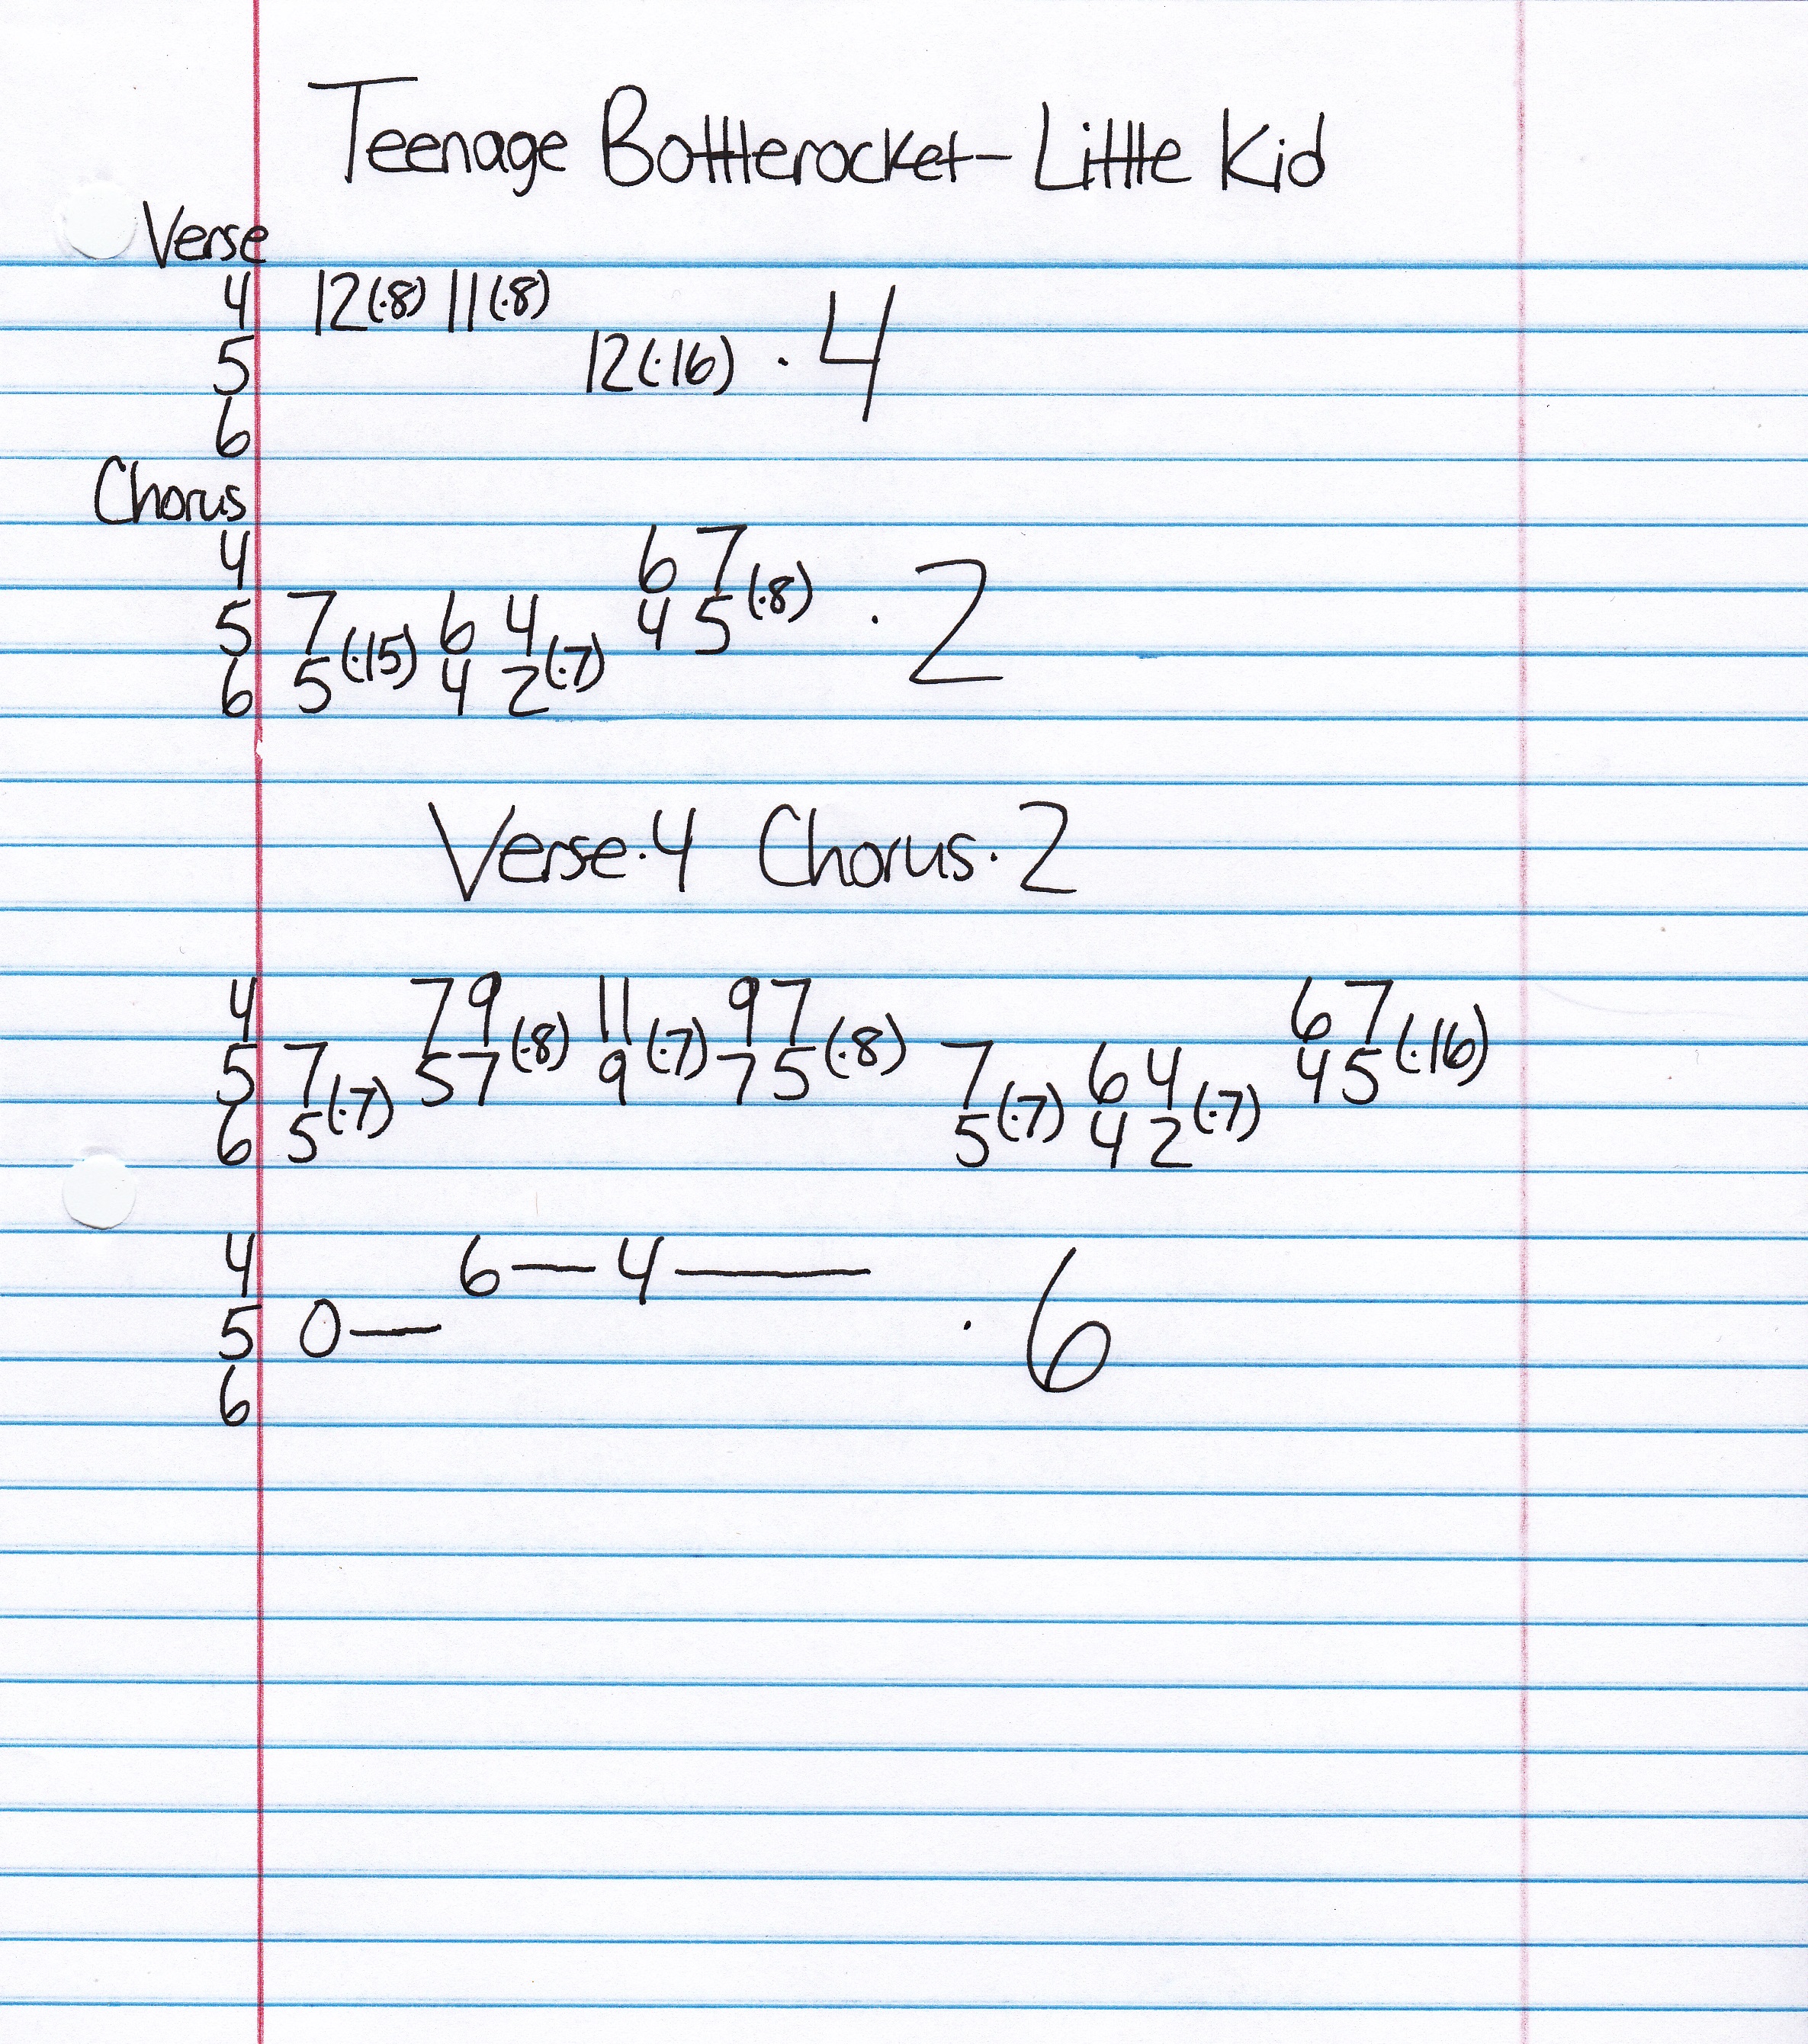 Teenage Bottlerocket - Little Kid
Verse
4 12(·8) 11(·8)
5 12(·16) · 4
6
Chorus
4 6 7
5 7 6 4 4 5 (·8) · 2
6 5 (·15) 4 2 (·7)
Verse·4 Chorus·2
4 7 9 11 9 7 6 7
5 7 5 7 (·8) 9 (·7) 7 5 (·8) 7 6 4 4 5 (·16)
6 5 (·7) 5 (·7) 4 2 (·7)
4 6— 4——
5 0— · 6
6